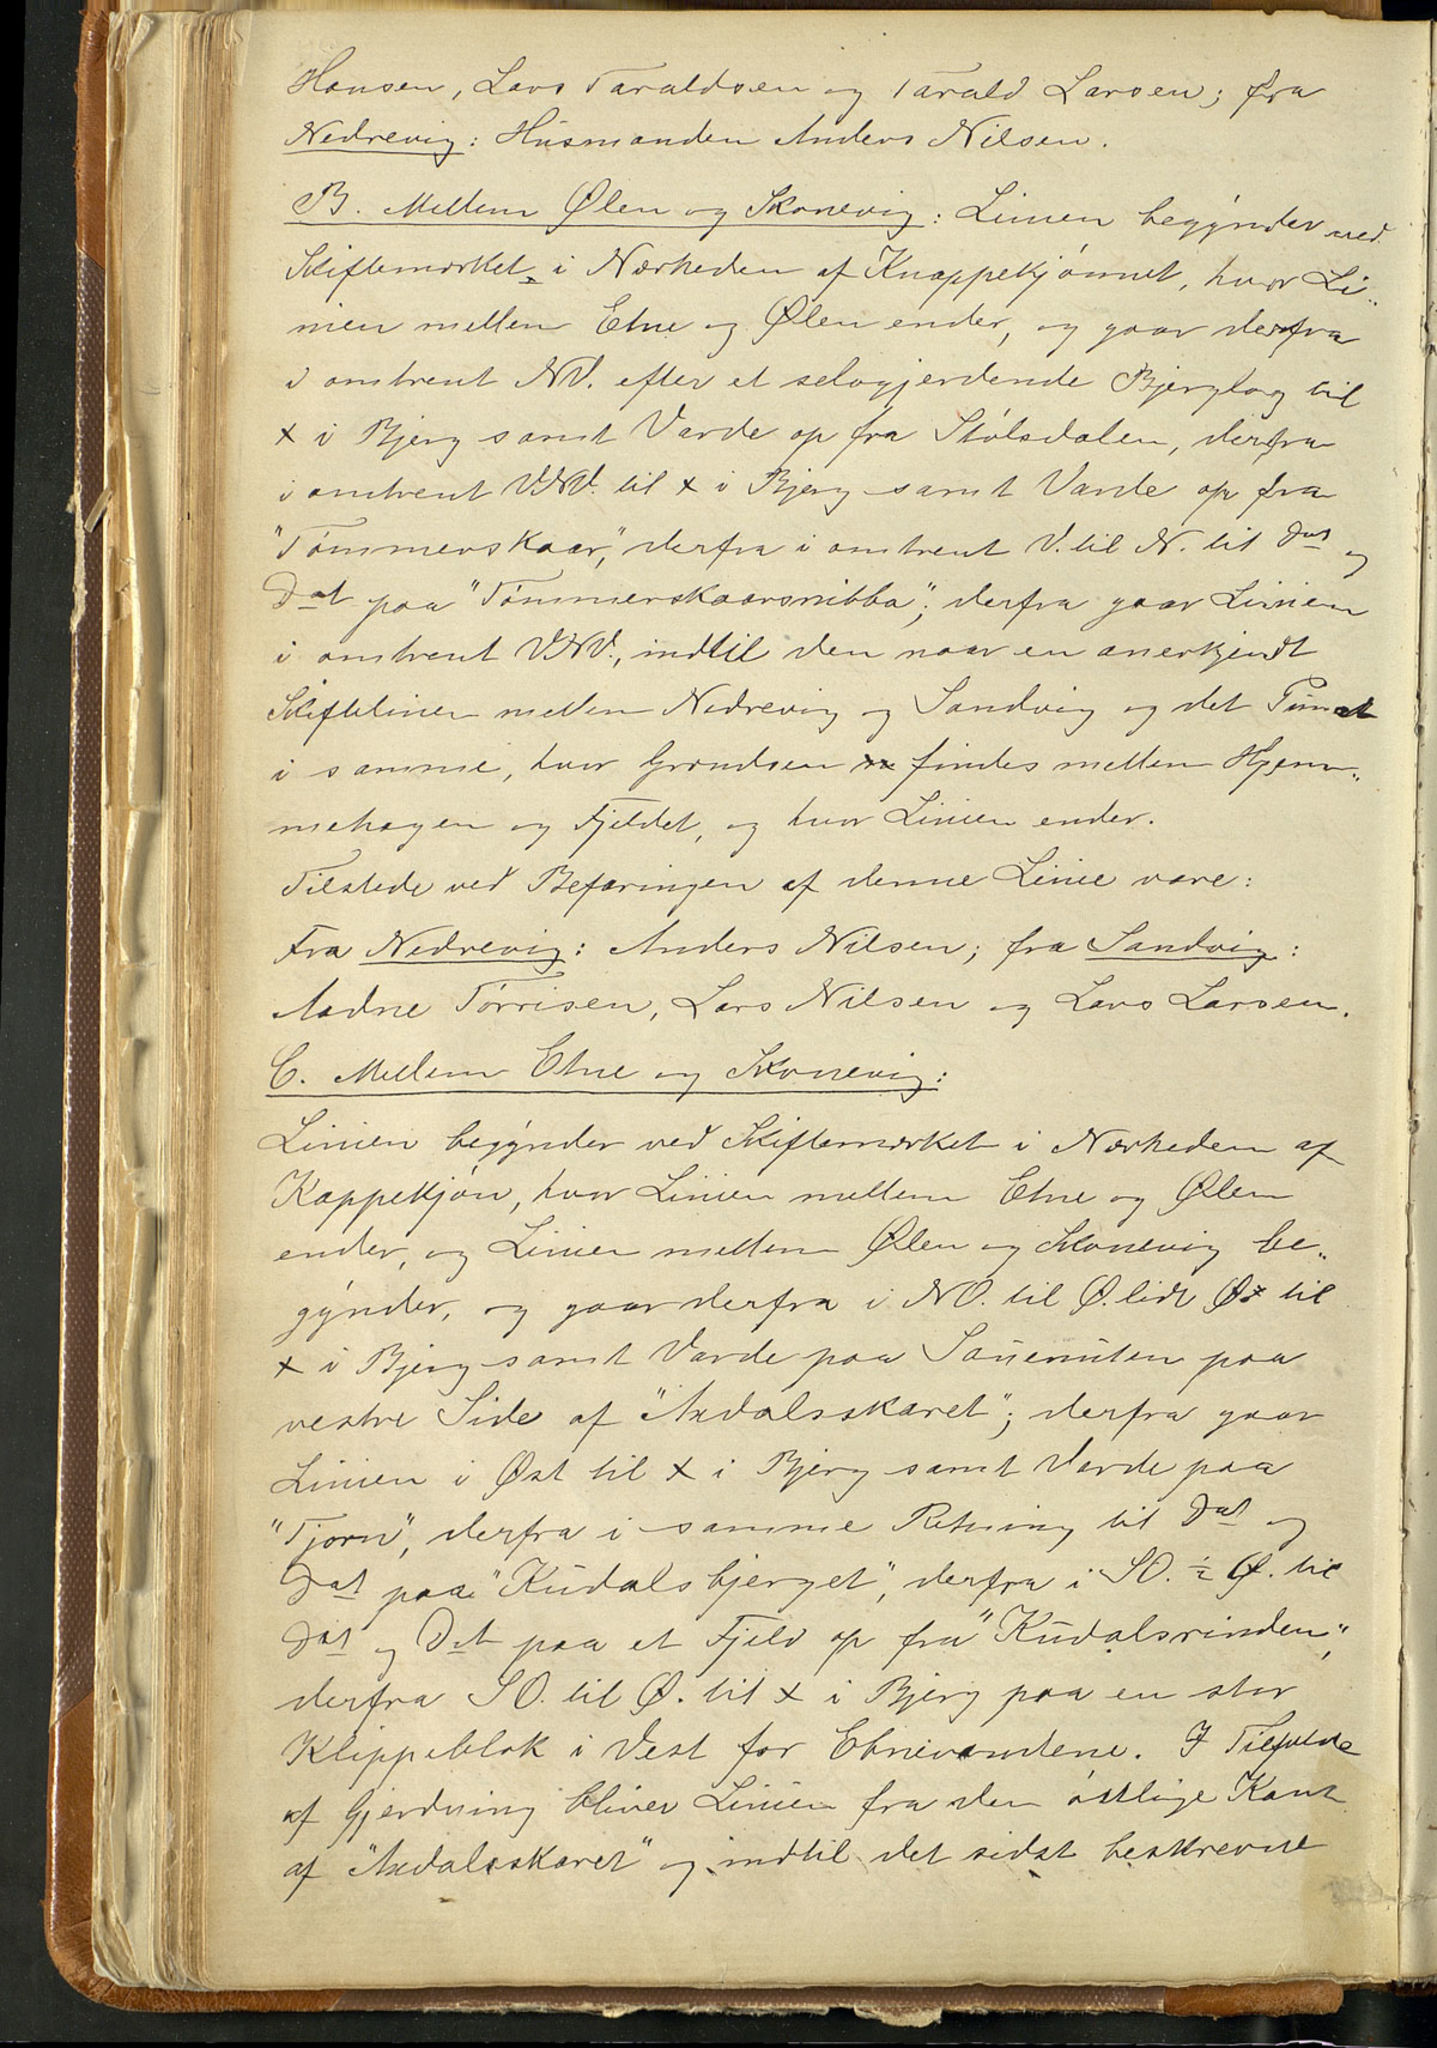 Hansen, Lars Taraldsen og Tarald Larsen; fra
Nedrevig: Husmanden Anders Nilsen.
B. Mellem Ølen og Skonevig: Linien begynder ved
Skiftemærket i Nærheden af Knappekjønnet, hvor Li„
nien mellem Etne og Ølen ender, og gaar derfra
i omtrent NV. efter et selvgjerdende Bjerglag til
x i Bjerg samt Varde op fra Stølsdalen, derfra
i omtrent VNV. til x i Bjerg samt Varde op fra
"Tømmerskaar," derfra i omtrent V. til N. til Dat og
Dat paa "Tømmerskaarsnibba"; derfra gaar Linien
i omtrent VNV., indtil den naar en anerkjendt
Skiftelinie mellem Nedrevig og Sandvig og det Punct
i samme, hvor Grændsen findes mellem Hjem„
mehagen og Fjeldet, og hvor Linien ender.
Tilstede ved Befaringen af denne Linie vare:
Fra Nedrevig: Anders Nilsen; fra Sandvig:
Aadne Tørrisen, Lars Nilsen og Lars Larsen.
C. Mellem Etne og Skonevig:
Linien begynder ved Skiftemærket i Nærheden af
Kappekjøn, hvor Linien mellem Etne og Ølen
ender, og Linien mellem Ølen og Skonevig be„
gynder, og gaar derfra i NO. til Ø. lidt Øst til
x i Bjerg samt Varde paa Sauenuten paa
vestre Side af "Axdalsskaret"; derfra gaar
Linien i Øst til x i Bjerg samt Varde paa
"Tjorn", derfra i samme Retning til Dat og
Dat paa "Kudalsbjerget", derfra i SO. ½ Ø. til
Dat og Dat paa et Fjeld op fra "Kudalsrinden",
derfra SO. til Ø. til x i Bjerg paa en stor
Klippeblok i Vest for Etnevandene. I Tilfælde
af Gjerdning bliver Linien fra den østlige Kant
af "Axdalsskaret" og indtil det sidst beskrevne